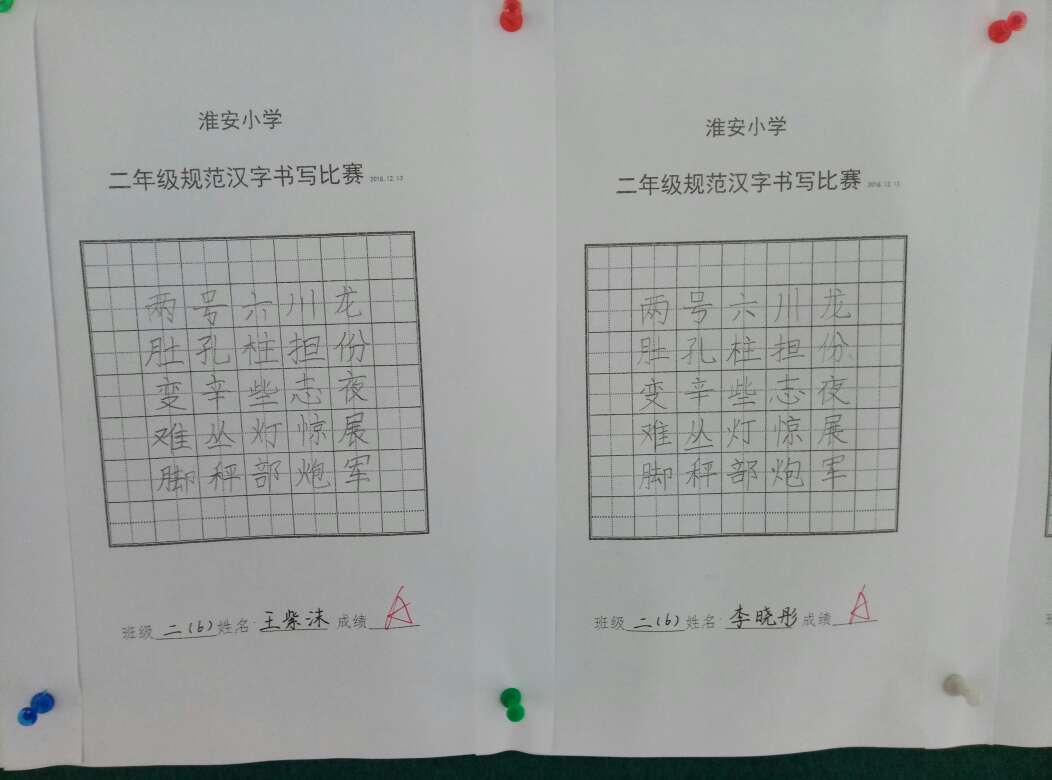 淮安小学
二年级规范汉字书写比赛 2016.12.12
两号六川龙
肚孔柱担份
变辛些志夜
难丛灯惊展
脚秤部炮军
班级 二(6) 姓名 王紫沫 成绩 A
淮安小学
二年级规范汉字书写比赛 2016.12.12
两号六川龙
肚孔柱担份
变辛些志夜
难丛灯惊展
脚秤部炮军
班级 二(6) 姓名 李晓彤 成绩 A